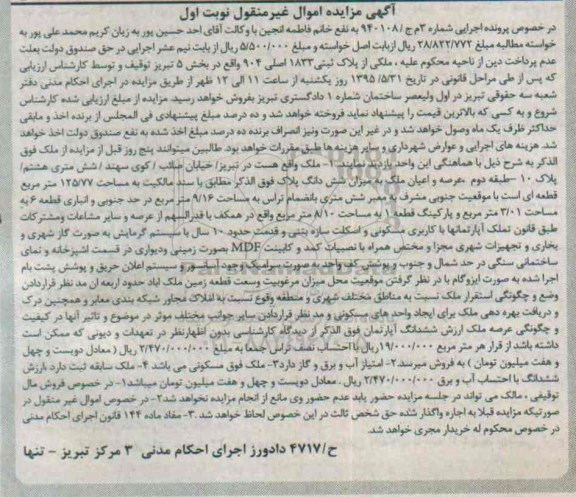 آگهی مزایده اموال غیرمنقول نوبت اول
در خصوص پرونده اجرایی شماره ۳م ج/۹۴۰۱۰۸ به نفع خانم فاطمه انجین با وکالت آقای احد حسین پور به زیان کریم محمد علی پور به
خواسته مطالبه مبلغ ۲۸/۸۲۲/۷۷۲ ریال ازبابت اصل خواسته و مبلغ ۵/۵۰۰/۰۰۰ ریال از بابت نیم عشر اجرایی در حق صندوق دولت بعلت
عدم پرداخت دین از ناحیه محکوم علیه ، ملکی از پلاک ثبتی۱۸۳۳ اصلی ۹۰۴ واقع در بخش ۵ تبریز توقیف و توسط کارشناس ارزیابی
که پس از طی مراحل قانونی در تاریخ ۱۳۹۵/۵/۳۱ روز یکشنبه از ساعت ۱۱ الی ۱۲ ظهر از طریق مزایده در اجرای احکام مدنی دفتر
شعبه سه حقوقی تبریز در اول ولیعصر ساختمان شماره ۱ دادگستری تبریز بفروش خواهد رسید. مزایده از مبلغ ارزیابی شده کارشناس
شروع و به کسی که بالاترین قیمت را پیشنهاد نماید فروخته خواهد شد و ده درصد مبلغ پیشنهادی فی المجلس از برنده اخذ و مابقی
حداکثر ظرف یک ماه وصول خواهد شد و در غیر این صورت ونیز انصراف برنده ده درصد مبلغ اخذ شده به نفع صندوق دولت اخذ خواهد
شد. هزینه های اجرایی و عوارض شهرداری و سایر هزینه ها طبق مقررات خواهد بود. طالبین میتوانند پنج روز قبل از مزایده از ملک فوق
الذکر به شرح ذیل با هماهنگی این واحد بازدید نمایند. ۱- ملک واقع هست در تبریز/ خیابان صائب / کوی سهند / شش متری هشتم/
پلاک ۱۰ –طبقه دوم ،عرصه و اعیان ملک به میزان شش دانگ پلاک فوق الذکر مطابق با سند مالکیت به مساحت ۱۲۵/۷۷ متر مربع
قطعه ای است با موقعیت جنوبی مشرف به معبر شش متری بانضمام تراس به مساحت ۹/۱۶ متر مربع در حد جنوبی و انباری قطعه ۶ به
مساحت ۳/۰۱ متر مربع و پارکینگ قطعه ۱ به مساحت ۸/۱۰ متر مربع واقع در همکف با قدرالسهم از عرصه و سایر مشاعات ومشترکات
طبق قانون تملک آپارتمانها با کاربری مسکونی و اسکلت سازه بتنی و قدمت حدود ۱۰ سال با سیستم گرمایش به صورت گاز شهری و
بخاری و تجهیزات شهری مجزا و مختص همراه با نصبیات کمد و کابینت MDF بصورت زمینی ودیواری در قسمت اشپزخانه و نمای
ساختمانی سنگی در حد شمال و جنوب و پوشش کف واحد به صورت سرامیک وجود آسانسور و سیستم اعلان حریق و پوشش پشت بام
اجرا شده به صورت ایزوگام با در نظر گرفتن موقعیت محل میزان مرغوبیت وسعت قطعه زمین ملک اباد حدود اربعه ان مد نظر قراردادن
وضع و چگونگی استقرار ملک نسبت به مناطق مختلف شهری و منطقه وقوع نسبت به املاک مجاور شبکه بندی معابر و همچنین درک
و دریافت بهره دهی ملک برای ایجاد واحد های مسکونی و مد نظر قراردادن سایر جوانب مختلف موثر در موضوع و تاثیر آنها در کیفیت
و چگونگی عرصه ملک ارزش ششدانگ آپارتمان فوق الذکر از دیدگاه کارشناسی بدون اظهارنظر در تعهدات و دیونی که ممکن است
داشته باشد از قرار هر متر مربع ۱۹/۰۰۰/۰۰۰ریال با احتساب نصف تراس جمعا به مبلغ ۲/۴۷۰/۰۰۰/۰۰۰ ریال ( معادل دویست و چهل
و هفت میلیون تومان ) به فروش میرسد.۲- امتیاز آب و برق و گاز دارد۳- ملک فوق مسکونی می باشد ۴- ملک سابقه ثبت دارد باارزش
ششدانگ با احتساب آب و برق ۲/۴۷۰/۰۰۰/۰۰۰ ریال . معادل دویست و چهل و هفت میلیون تومان میباشد۱- در خصوص فروش مال
توقیفی ، مالک می تواند در جلسه مزایده حضور یابد عدم حضور وی مانع از انجام مزایده نخواهد شد۲- در خصوص اموال غیر منقول در
صورتیکه مزایده قبلا به اجاره واگذار شده حق شخص ثالث در این خصوص لحاظ خواهد شد .۳- مفاد ماده ۱۴۴ قانون اجرای احکام مدنی
در خصوص محکوم له خریدار مجری خواهد شد.
ح/۴۷۱۷ دادورز اجرای احکام مدنی ۳ مرکز تبریز – تنها